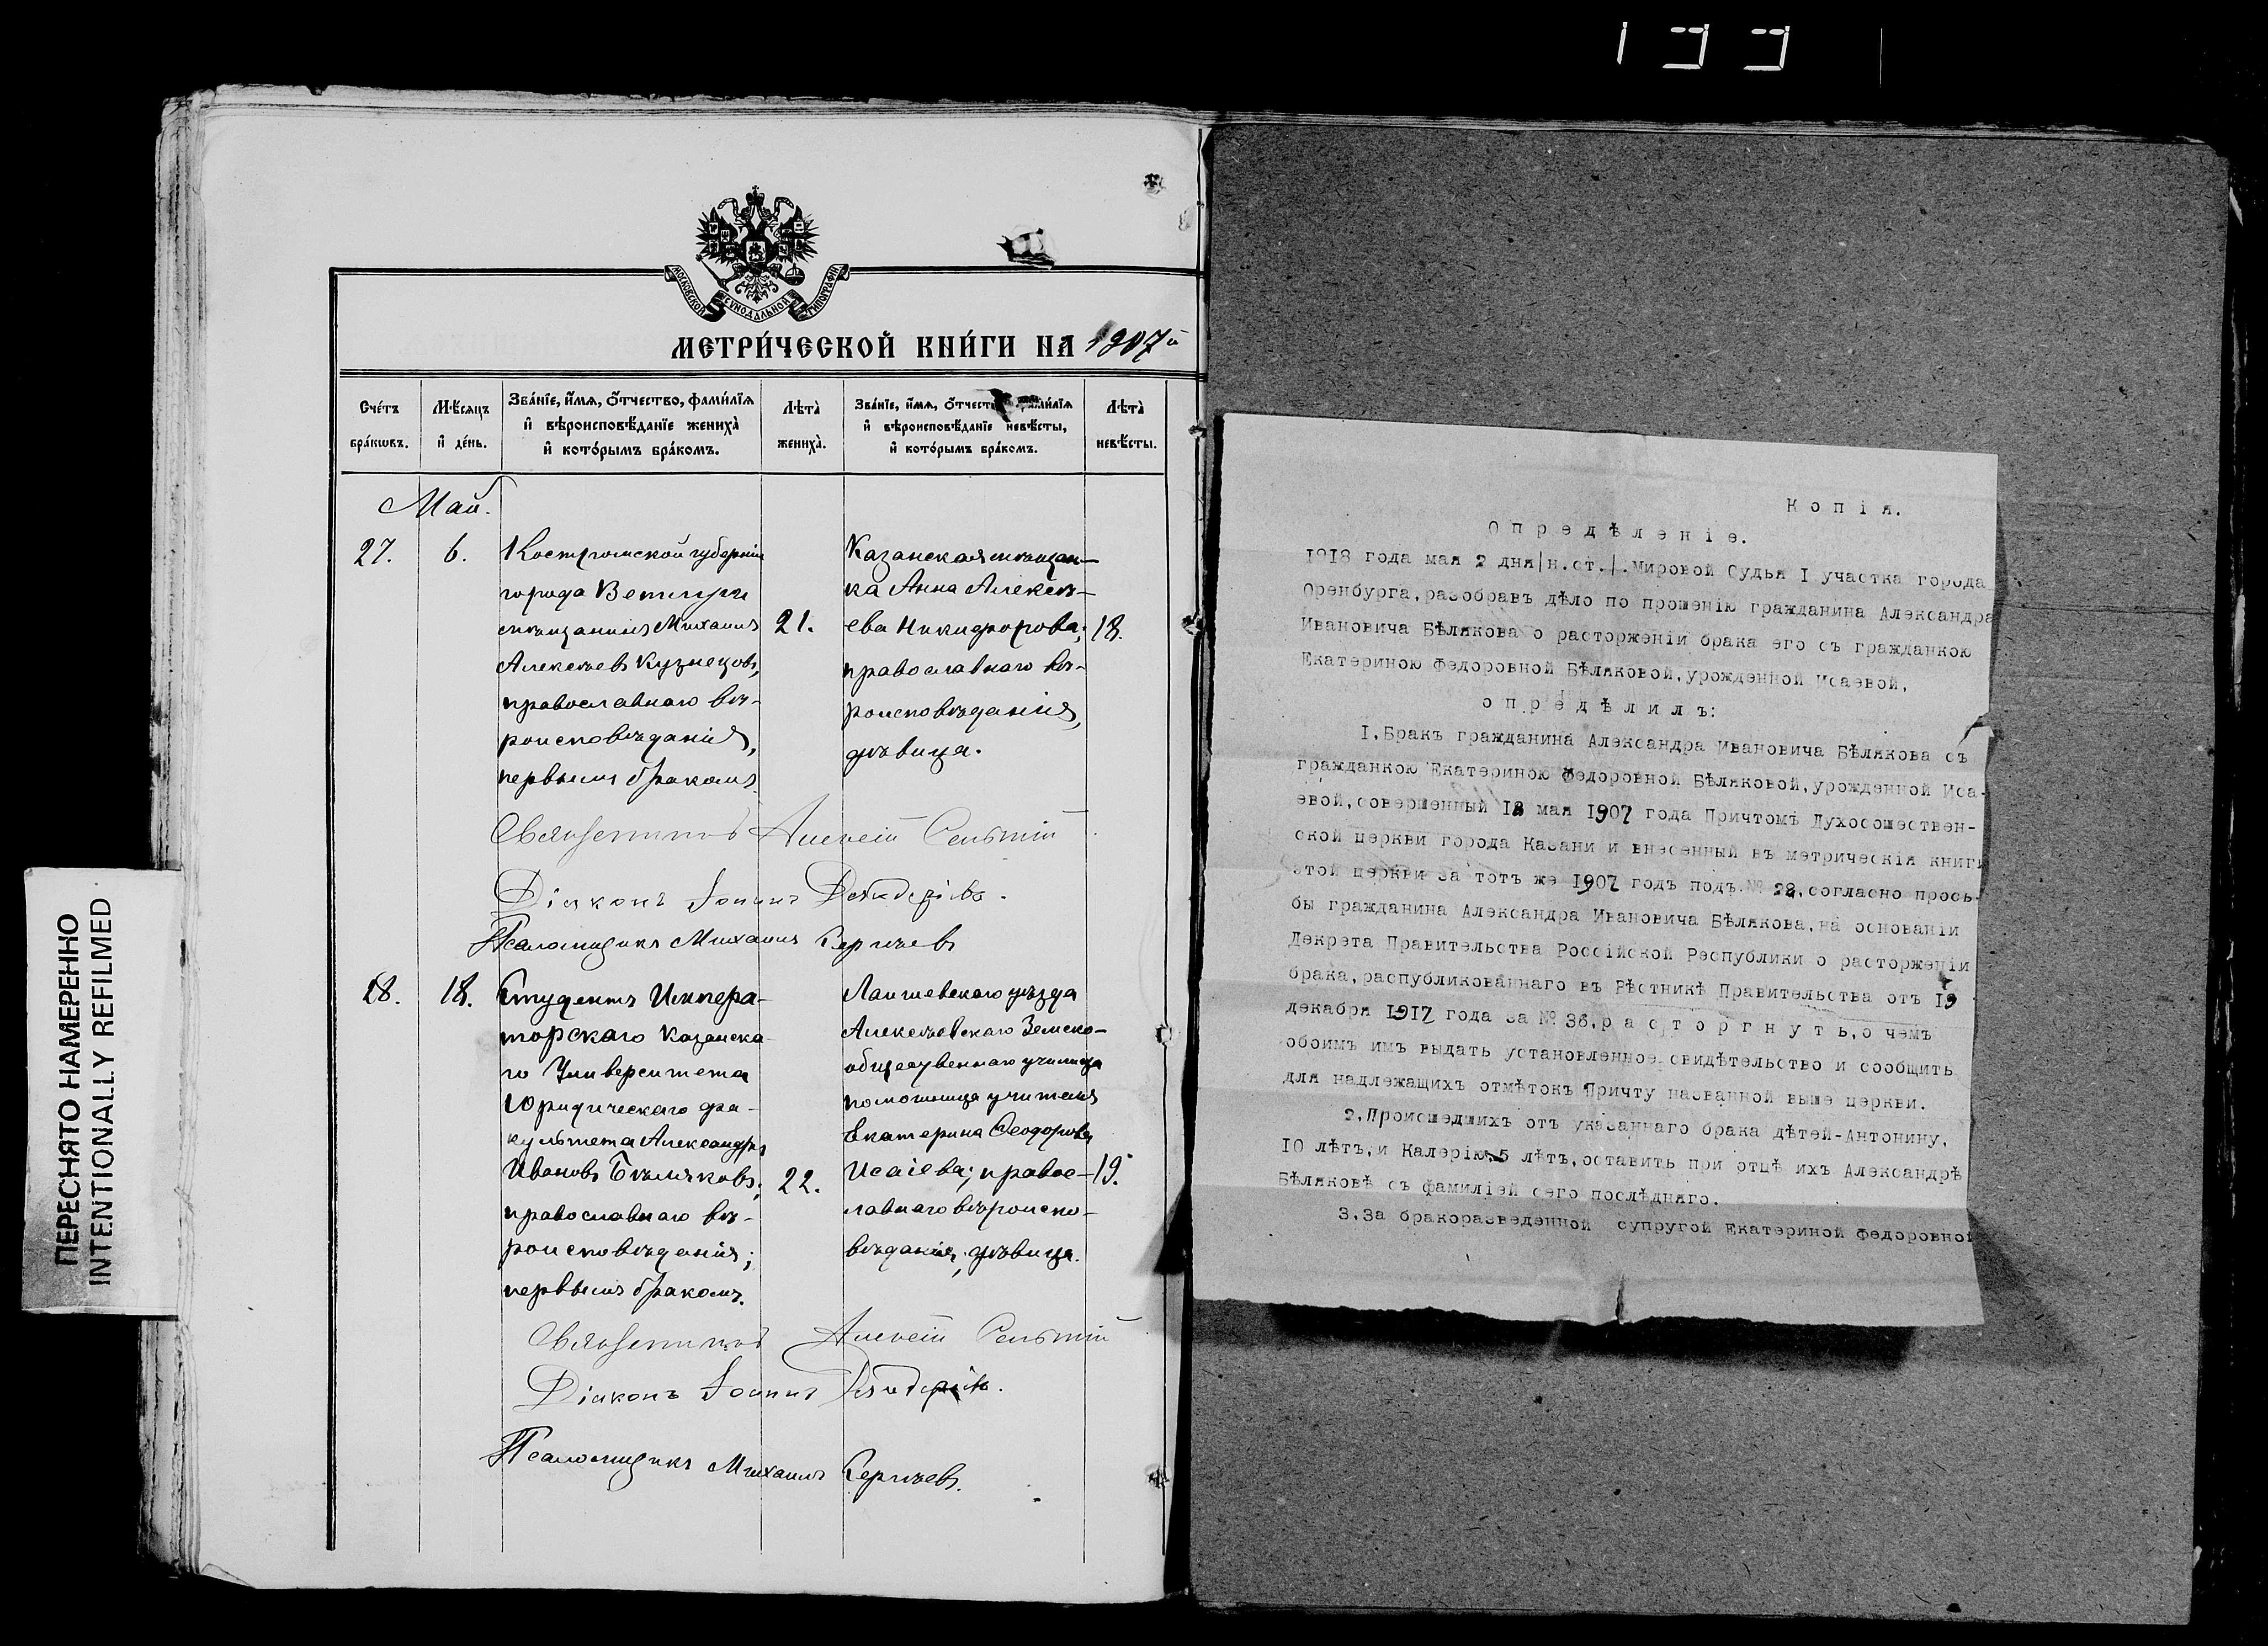 ПЕРЕСНЯТО НАМЕРЕННО
INTENTIONALLY REFILMED
МОСКОВСКОЙ СѴНОДАЛЬНОЙ ТИПОГРАФІИ
МЕТРИ́ЧЕСКОЙ КНИ́ГИ НА 1907й
Сче́тъ бра́кωвъ.
Мѣ́сяцъ и҆ де́нь.
Зва́нїе, и҆́мя, ѻ҆́тчество, фами́лїя
и҆ вѣроисповѣ́данїе жениха̀
и҆ кото́рымъ бра́комъ.
Лѣта̀ жениха̀.
Зва́нїе, и҆́мя, ѻ҆́тчество, фами́лїя
и҆ вѣроисповѣ́данїе невѣ́сты,
и҆ кото́рымъ бра́комъ.
Лѣта̀ невѣ́сты.
Май.
27.
6.
Костромской губерніи
города Ветлуги
мѣщанинъ Михаилъ
Алексѣевъ Кузнецовъ,
православнаго вѣ-
роисповѣданія,
первымъ бракомъ.
21.
Казанская мѣщан-
ка Анна Алексѣ-
ева Никифорова;
православнаго вѣ-
роисповѣданія,
дѣвица.
18.
Священникъ Алексій
Діаконъ Іоаннъ
Псаломщикъ Михаилъ Сергѣевъ
28.
18.
Студентъ Импера-
торскаго Казанска-
го Университета
Юридическаго фа-
культета Александръ
Ивановъ Бѣляковъ;
православнаго вѣ-
роисповѣданія;
первымъ бракомъ.
22.
Лаишевскаго уѣзда
Алексѣевскаго Земско-
общественнаго училища
помощница учителя
Екатерина Ѳеодорова
Исаіева; правос-
лавнаго вѣроиспо-
вѣданія, дѣвица.
19.
Священникъ Алексій
Діаконъ Іоаннъ
Псаломщикъ Михаилъ Сергѣевъ.
Копія.
Опредѣленіе.
1918 года мая 2 дня/н.ст./.Мировой Судья I участка города
Оренбурга,разобравъ дѣло по прошенію гражданина Александра
Ивановича Бѣлякова о расторженіи брака его съ гражданкою
Екатериною Федоровной Бѣляковой,урожденной Исаевой,
опредѣлилъ:
I.Бракъ гражданина Александра Ивановича Бѣлякова съ
гражданкою Екатериною Федоровной Бѣляковой,урожденной Иса-
евой,совершенный 18 мая 1907 года Причтомъ Духосошествен-
ской церкви города Казани и внесенный въ метрическія книги
этой церкви за тотъ же 1907 годъ подъ № 28,согласно прось-
бы гражданина Александра Ивановича Бѣлякова,на основаніи
Декрета Правительства Россійской Республики о расторженіи
брака,распубликованнаго въ Вѣстникѣ Правительства отъ 19
декабря 1917 года за № 36,расторгнуть,о чемъ
обоимъ имъ выдать установленное свидѣтельство и сообщить
для надлежащихъ отмѣтокъ Причту названной выше церкви.
2.Происшедшихъ отъ указаннаго брака дѣтей-Антонину,
10 лѣтъ,и Калерію,5 лѣтъ,оставить при отцѣ ихъ Александрѣ
Бѣляковѣ съ фамиліей сего послѣдняго.
3.За бракоразведенной супругой Екатериной Федоровной